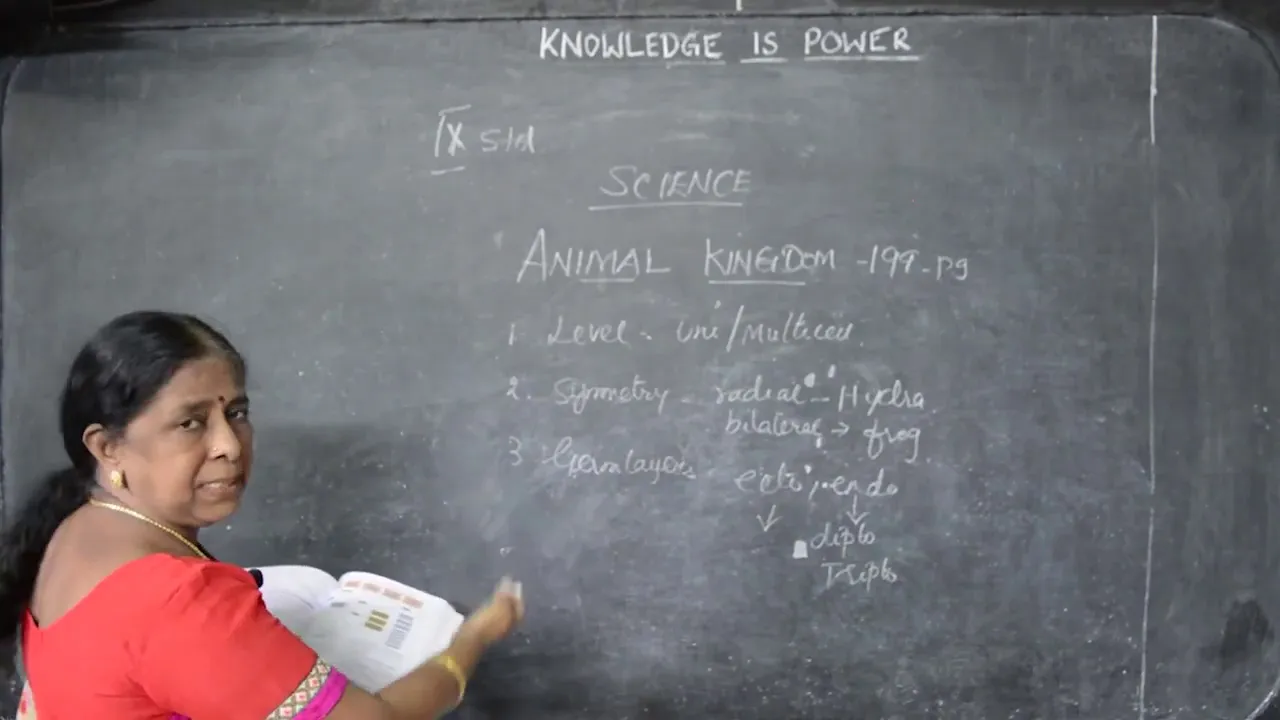 KNOWLEDGE IS POWER
IX Std
SCIENCE
ANIMAL KINGDOM - 199 - pg
1. Level - Uni/Multicell.
2. Symmetry - radial - Hydra
bilateral → frog
3 Germlayers ecto, endo
diplo
Triplo